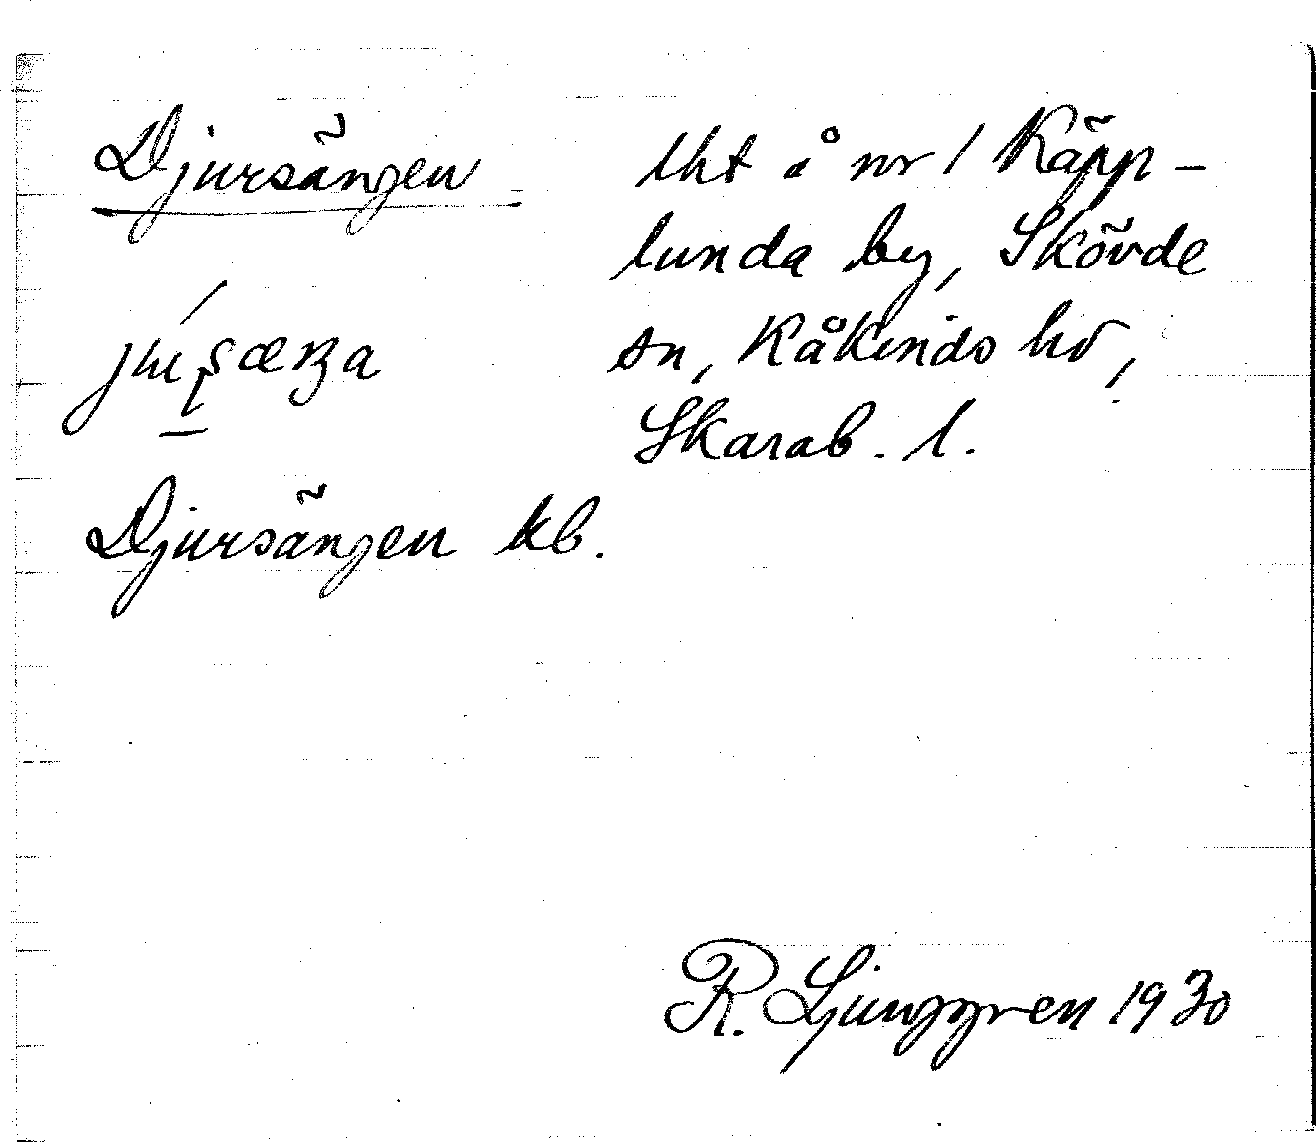 Djursängen
lht å nr 1 Käpp-
lunda by, Skövde
sn, Kåkinds hd,
Skarab. l.
Djursängen kb.
R. Ljunggren 1930